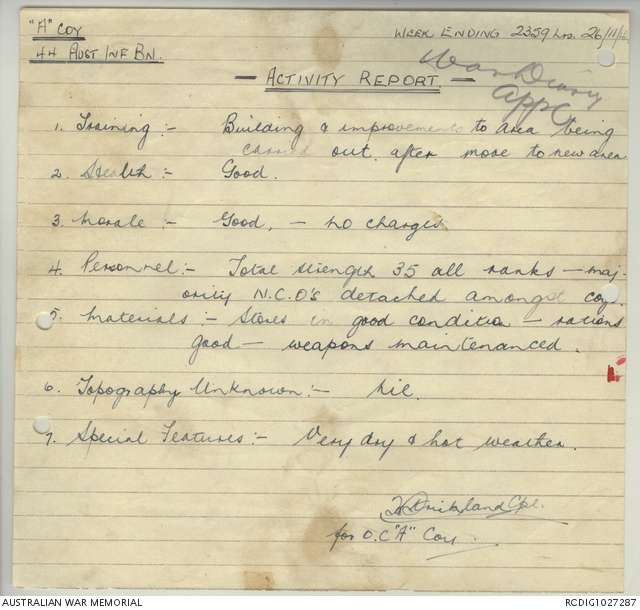 "A" COY
WEEK ENDING 2359 hrs. 26/11/
44 AUST INF BN.
War Diary
App C
— ACTIVITY REPORT. —
1. Training :- Building & improvements to area being
carried out, after move to new area
2. Health :- Good.
3. Morale :- Good, - No charges
4. Personnel :- Total strength 35 all ranks — maj-
ority N.C.O's detached amongst coys.
5. Materials :- Stores in good condition — rations
good — weapons maintenanced.
6. Topography Unknown :- Nil.
7. Special Features :- Very dry & hot weather.
Cpl.
for O.C "A" Coy
AUSTRALIAN WAR MEMORIAL
RCDIG1027287